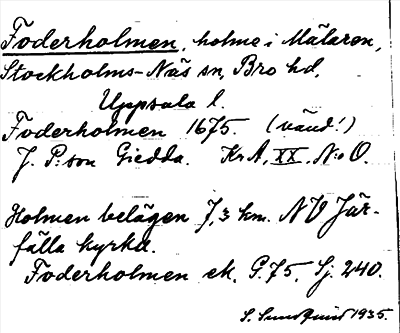 Foderholmen, holme i Mälaren,
Stockholms-Näs sn, Bro hd,
Uppsala l.
Foderholmen 1675. (vänd!)
J. P:son Giedda. KrA, XX, N:o O.
Holmen belägen 7,3 km. NV Jär-
fälla kyrka.
Foderholmen ek. G.75. Sj. 240.
S. Sundquist 1935.